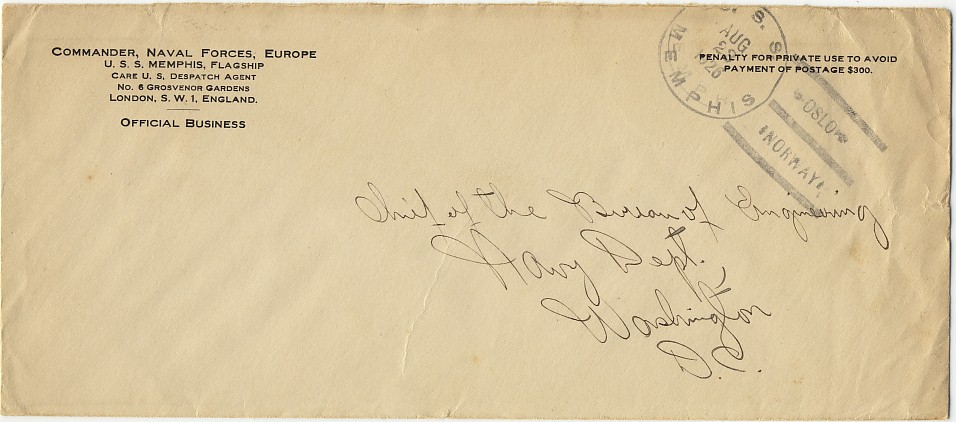 COMMANDER, NAVAL FORCES, EUROPE
U. S. S. MEMPHIS, FLAGSHIP
CARE U. S. DESPATCH AGENT
NO. 6 GROSVENOR GARDENS
LONDON, S. W. 1, ENGLAND.
OFFICIAL BUSINESS
PENALTY FOR PRIVATE USE TO AVOID
PAYMENT OF POSTAGE $300.
U. S. S. MEMPHIS
AUG
1926
OSLO
NORWAY
Chief of the Bureau of Engineering
Navy Dept.
Washington
D.C.